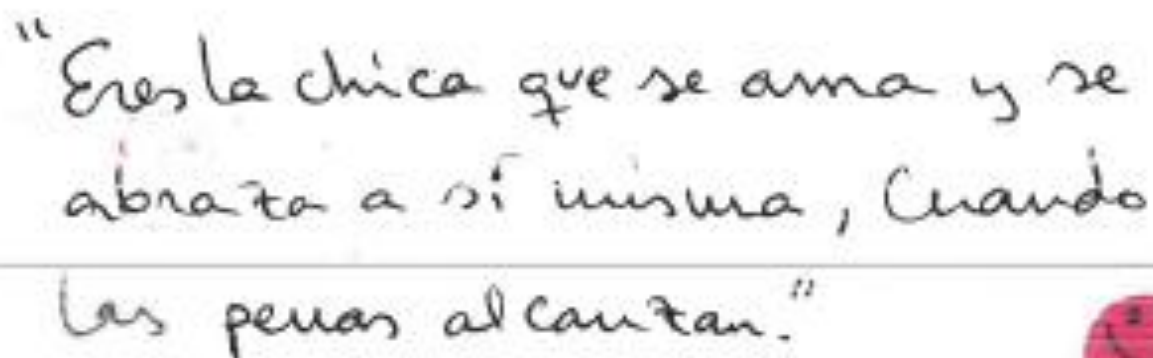 "Eres la chica que se ama y se
abraza a sí misma, Cuando
las penas alcanzan."